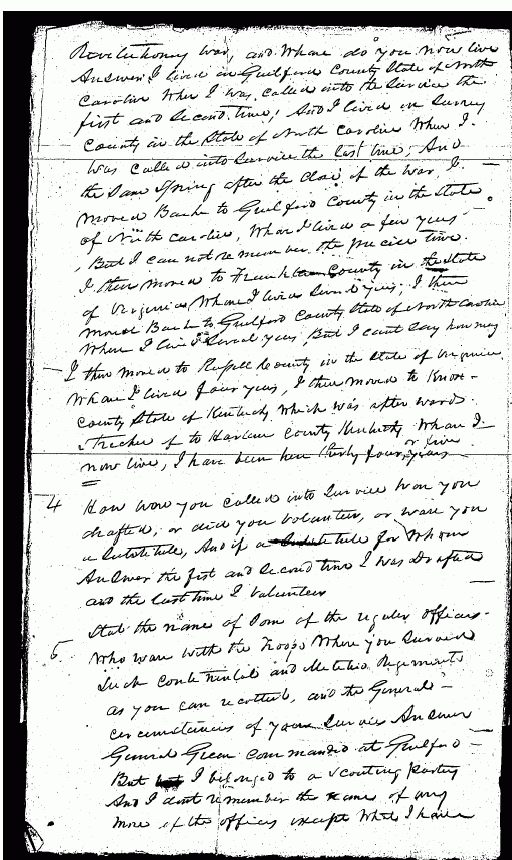 Revolutionary War, and Whare do you now live
Answer I lived in Guilford County State of North
Caroline When I was called into the Service the
first and Second time; And I lived in Surrey
County in the State of North Caroline When I
Was Called into Service the last time; And
the Same Spring after the Close of the War, I
moved Back to Guilford County in the State
of North Caroline, Whare I lived a few years
, But I can not remember the precise time.
I then moved to Franklin County in the State
of Virginia Whare I lived Several years; I then
moved Back to Guilford County State of North Caroline
Where I lived Several years, But I cant Say how many
I then moved to Russell County in the State of Virginia,
Whare I lived four years, I then moved to Knox
County State of Kentucky Which was after wards
Stricken of to Harlan County Kentucky Whare I
now live, I have been here thirty four or five years
4 How were you called into Service ware you
drafted, or did you volunteer, or ware you
a Substitute, And if a Substitute for Whom
Answer the first and Second time I was Drafted
and the last time I Volunteer
5 Stat the name of Som of the regular officers
Who ware with the Troops Where you Served
Such continental and Melitia Regements
as you can recollect, and the General
circumstances of your Service Answer
General Green commanded at Guilford
But I belonged to a Scouting party
And I dont remember the name of any
more of the officers except What I have